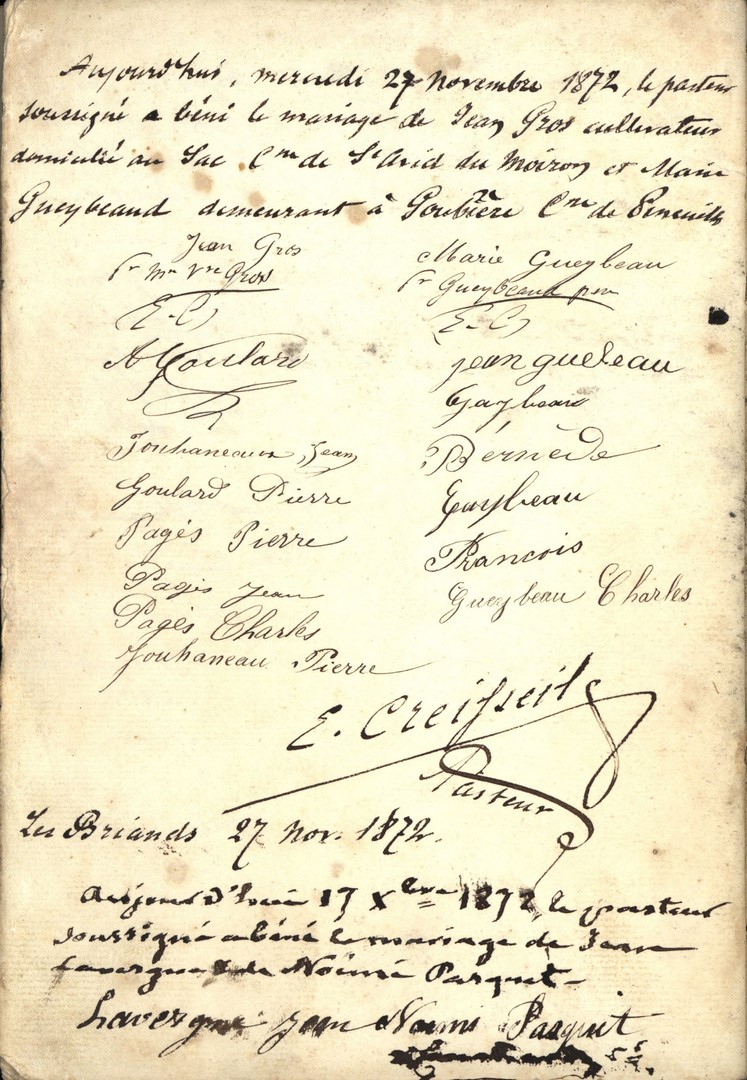 Aujourd'hui, mercredi 27 novembre 1872, le pasteur
soussigné a béni le mariage de Jean Gros cultivateur
domicilié au Sac Cne de St Avid du Moiron et Marie
Gueybeaud demeurant à Goubière Cne de Pineuilh
Jean Gros
pr Mme Vve Gros
E. C
A Goulard
Jouhaneau Jean
Goulard Pierre
Pagès Pierre
Pagès Jean
Pagès Charles
Jouhaneau Pierre
Marie Gueybeau
pr Gueybeaud père
E. C
jean guebeau
Gaybeau
Bernède
Gueybeau
Francois
Gueybeau Charles
E. Creisseil
Pasteur
Les Briands 27 Nov. 1872.
Aujourd'hui 17 Xbre 1872, le pasteur
soussigné a béni le mariage de Jean
Lavergne & de Noémi Parquit
Lavergne Jean Noemi Pasquit